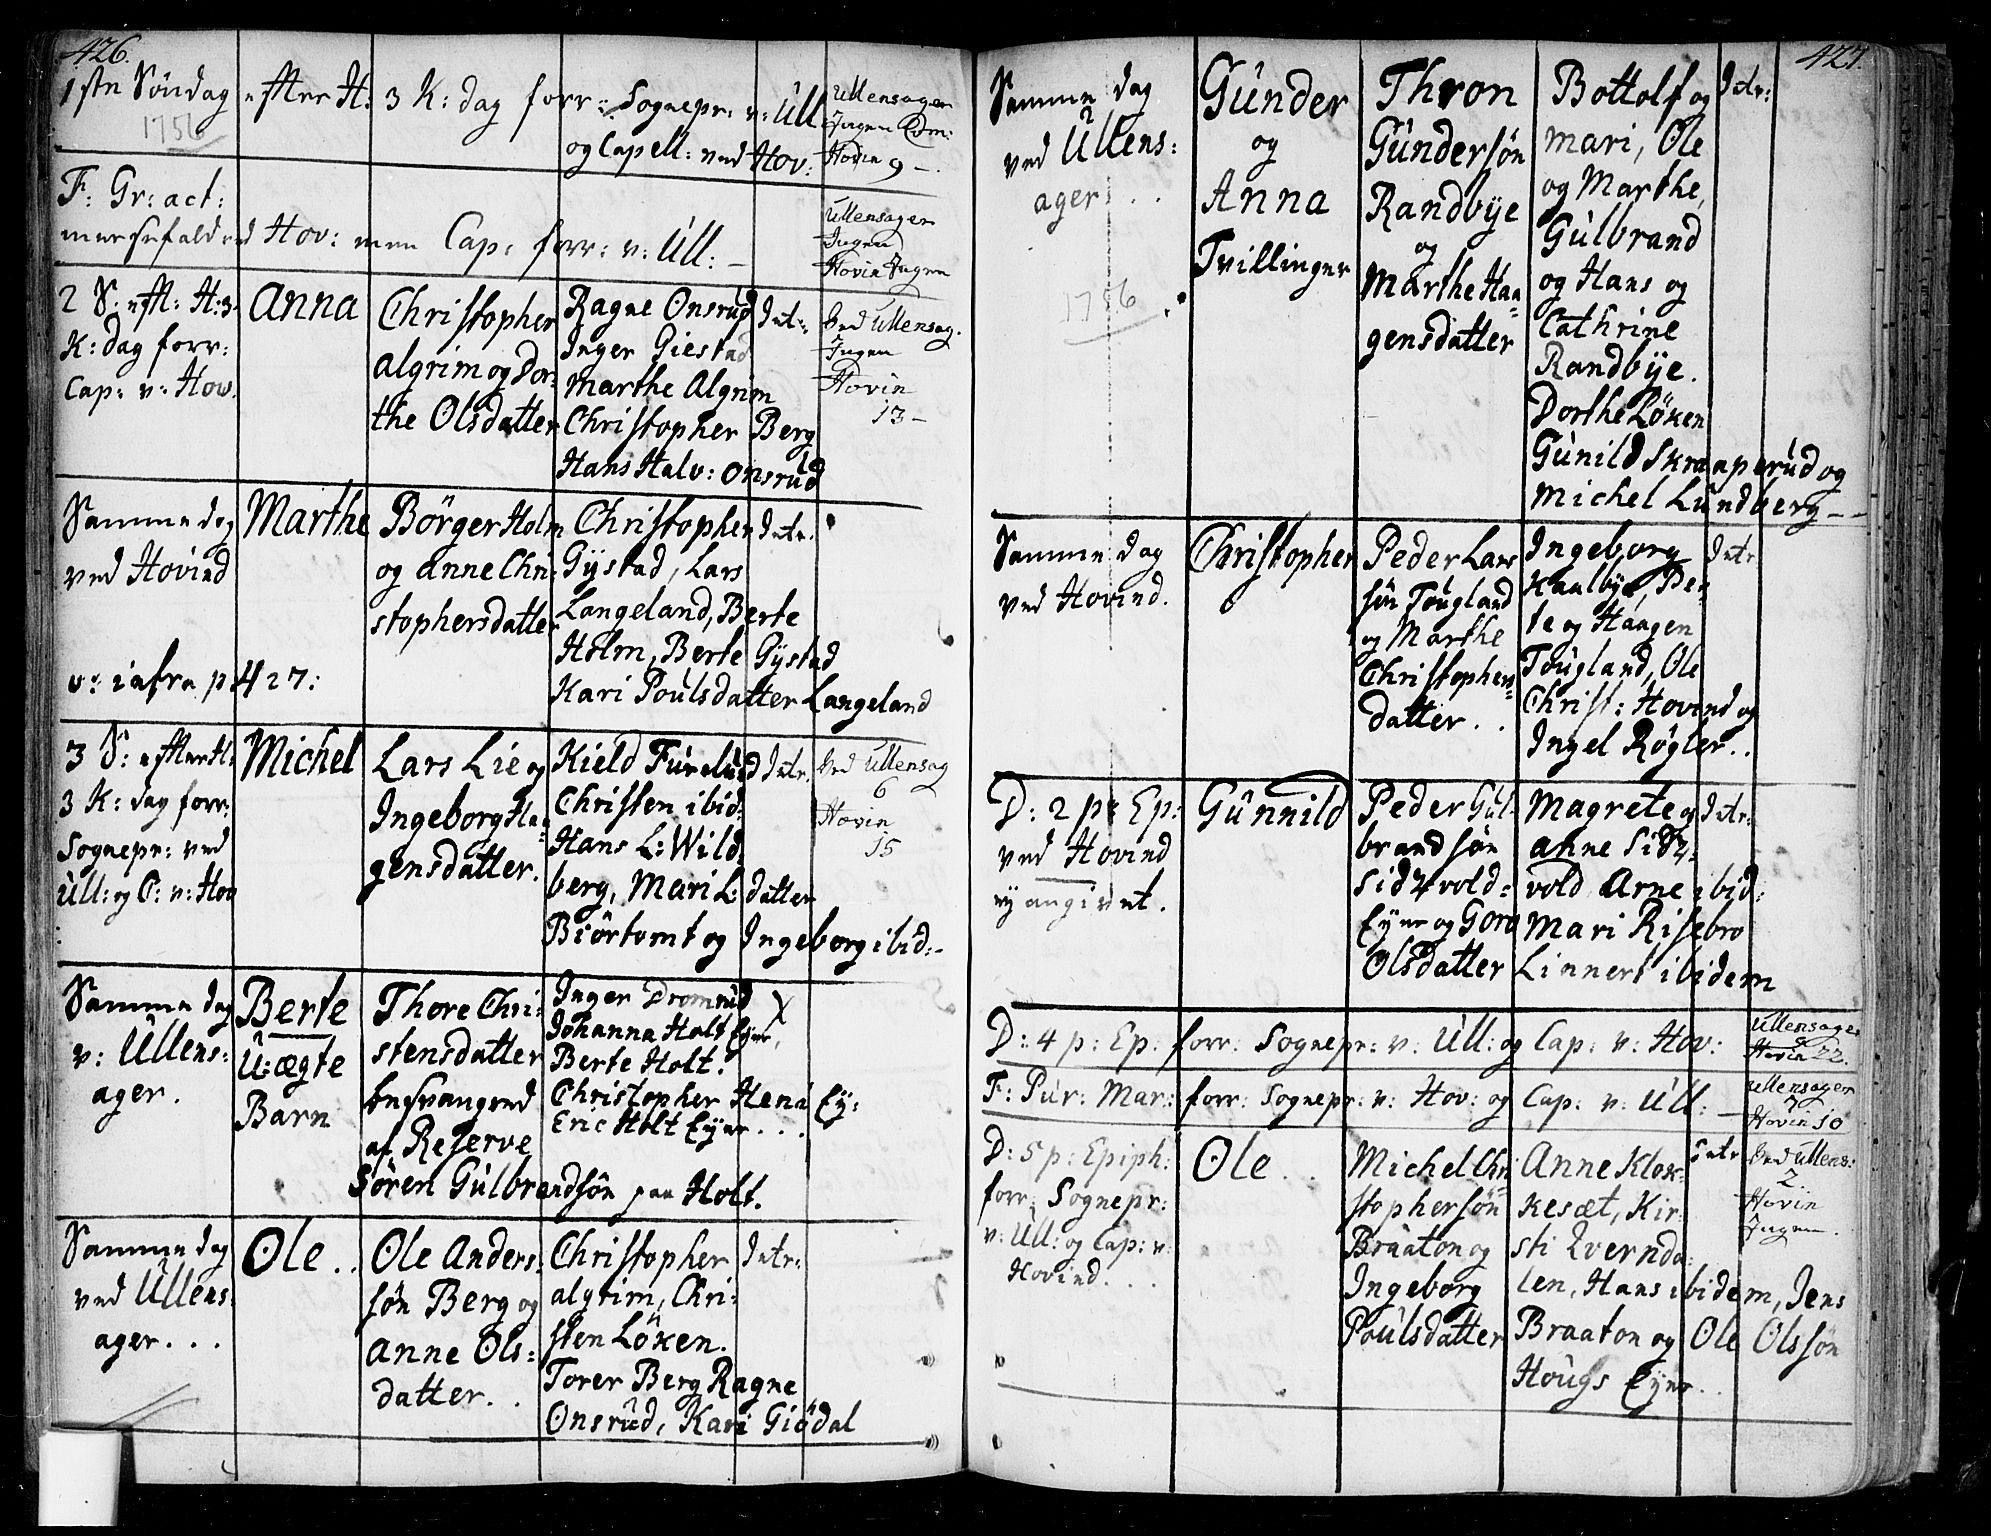 426.
1ste Söndag efter H. 3 K: dag forr: Sognepr: v: Ull
og Capell: ved Hov:
1756
Ullensager
Ingen Com:
Hovin 9 -.
F: Gr: act:
messefald ved Hov: men Cap: forr: v: Ull: -
Ullensager
Ingen
Hovin Ingen
2 S. eft: H: 3.
K: dag forr:
Cap: v: Hov.
Anna
Christopher
Algrim og Dor-
the Olsdatter
Ragne Onsrud
Inger Giestad
Marthe Algrim
Christopher Berg
Hans Halv: Onsrud
Intr:
Ved Ullensag.
Ingen
Hovin
13 -
Samme dag
ved Hovind
v: infra p 427:
Marthe
Börger Holm
og Anne Chri-
stophersdatter
Christopher
Gÿstad, Lars
Langeland, Berte
Holm, Berte Gÿstad
Kari Poulsdatter Langeland
Intr.
3 S: efter H:
3 K: dag forr:
Sognepr: ved
Ull: og C: v: Hov
Michel
Lars Lie og
Ingeborg Haa-
gensdatter.
Kield Furelud
Christen ibid:
Hans L: Wild
berg, Mari L: datter
Biörtomt og Ingeborg ibid: -
Intr.
Ved Ullensag
6
Hovin
15
Samme dag
v: Ullens:
ager.
Berte
U: ægte
Barn
Thore Chri-
stensdatter
besvangred
af Reserve
Sören Gulbrandsön paa Holt.
Inger Dromrud
Johanna Holt Eÿer,
Berte Holt.
Christopher Hena
Eric Holt Eÿer . . .
Eÿ:
Samme dag
ved Ullens:
ager. . .
Ole . .
Ole Anders-
sön Berg og
Anne Ols-
datter. .
Christopher
Algrim, Chri-
sten Löken.
Torer Berg Ragne
Onsrud, Kari Giödal
Intr:
427.
Samme dag
ved Ullens:
ager. . .
1756
Gunder
og
Anna
Tvillinger
Thron
Gundersön
Randbÿe
og
Marthe Haa-
gensdatter
Bottolf og
Mari, Ole
og Marthe,
Gulbrand
og Hans og
Cathrine
Randbÿe.
Dorthe Löken
Gunild Skraaperud og
Michel Lundberg - -
Intr:
Samme dag
ved Hovind.
Christopher
Peder Lars
sön Tougland
og Marthe
Christophers-
datter . .
Ingeborg
Kaalbÿe, Ber-
te og Haagen
Tougland, Ole
Christ: Hovind og
Ingel Rögler. .
Intr
D: 2 p: Ep:
ved Hovind
eÿ angivet.
Gunnild
Peder Gul-
brandsön
Sidzvold-
Eÿer og Goro
Olsdatter
Magrete og
Anne Sidz-
vold Arne ibid:
Mari Risebro
Linnert ibidem
Intr:
D: 4 p: Ep: forr: Sognepr: v: Ull: og Cap: v: Hov:
Ullensager
Hovin 22.
F: Pur: Mar: forr: Sognepr: v: Hov: og Cap: v: Ull: -
Ullensager
7
Hovin 10
D: 5 p: Epiph:
forr: Sognepr:
v: Ull: og Cap: v:
Hovind. . .
Ole . .
Michel Chri
stophersön
Braaton og
Ingeborg
Poulsdatter
Anne Klok-
kesæt, Kir-
sti Qvernda-
len, Hans ibidem, Jens
Braaton og Ole Olssön
Hougs Eÿer. .
Intr
Ved Ullens:
2.
Hovin
Ingen